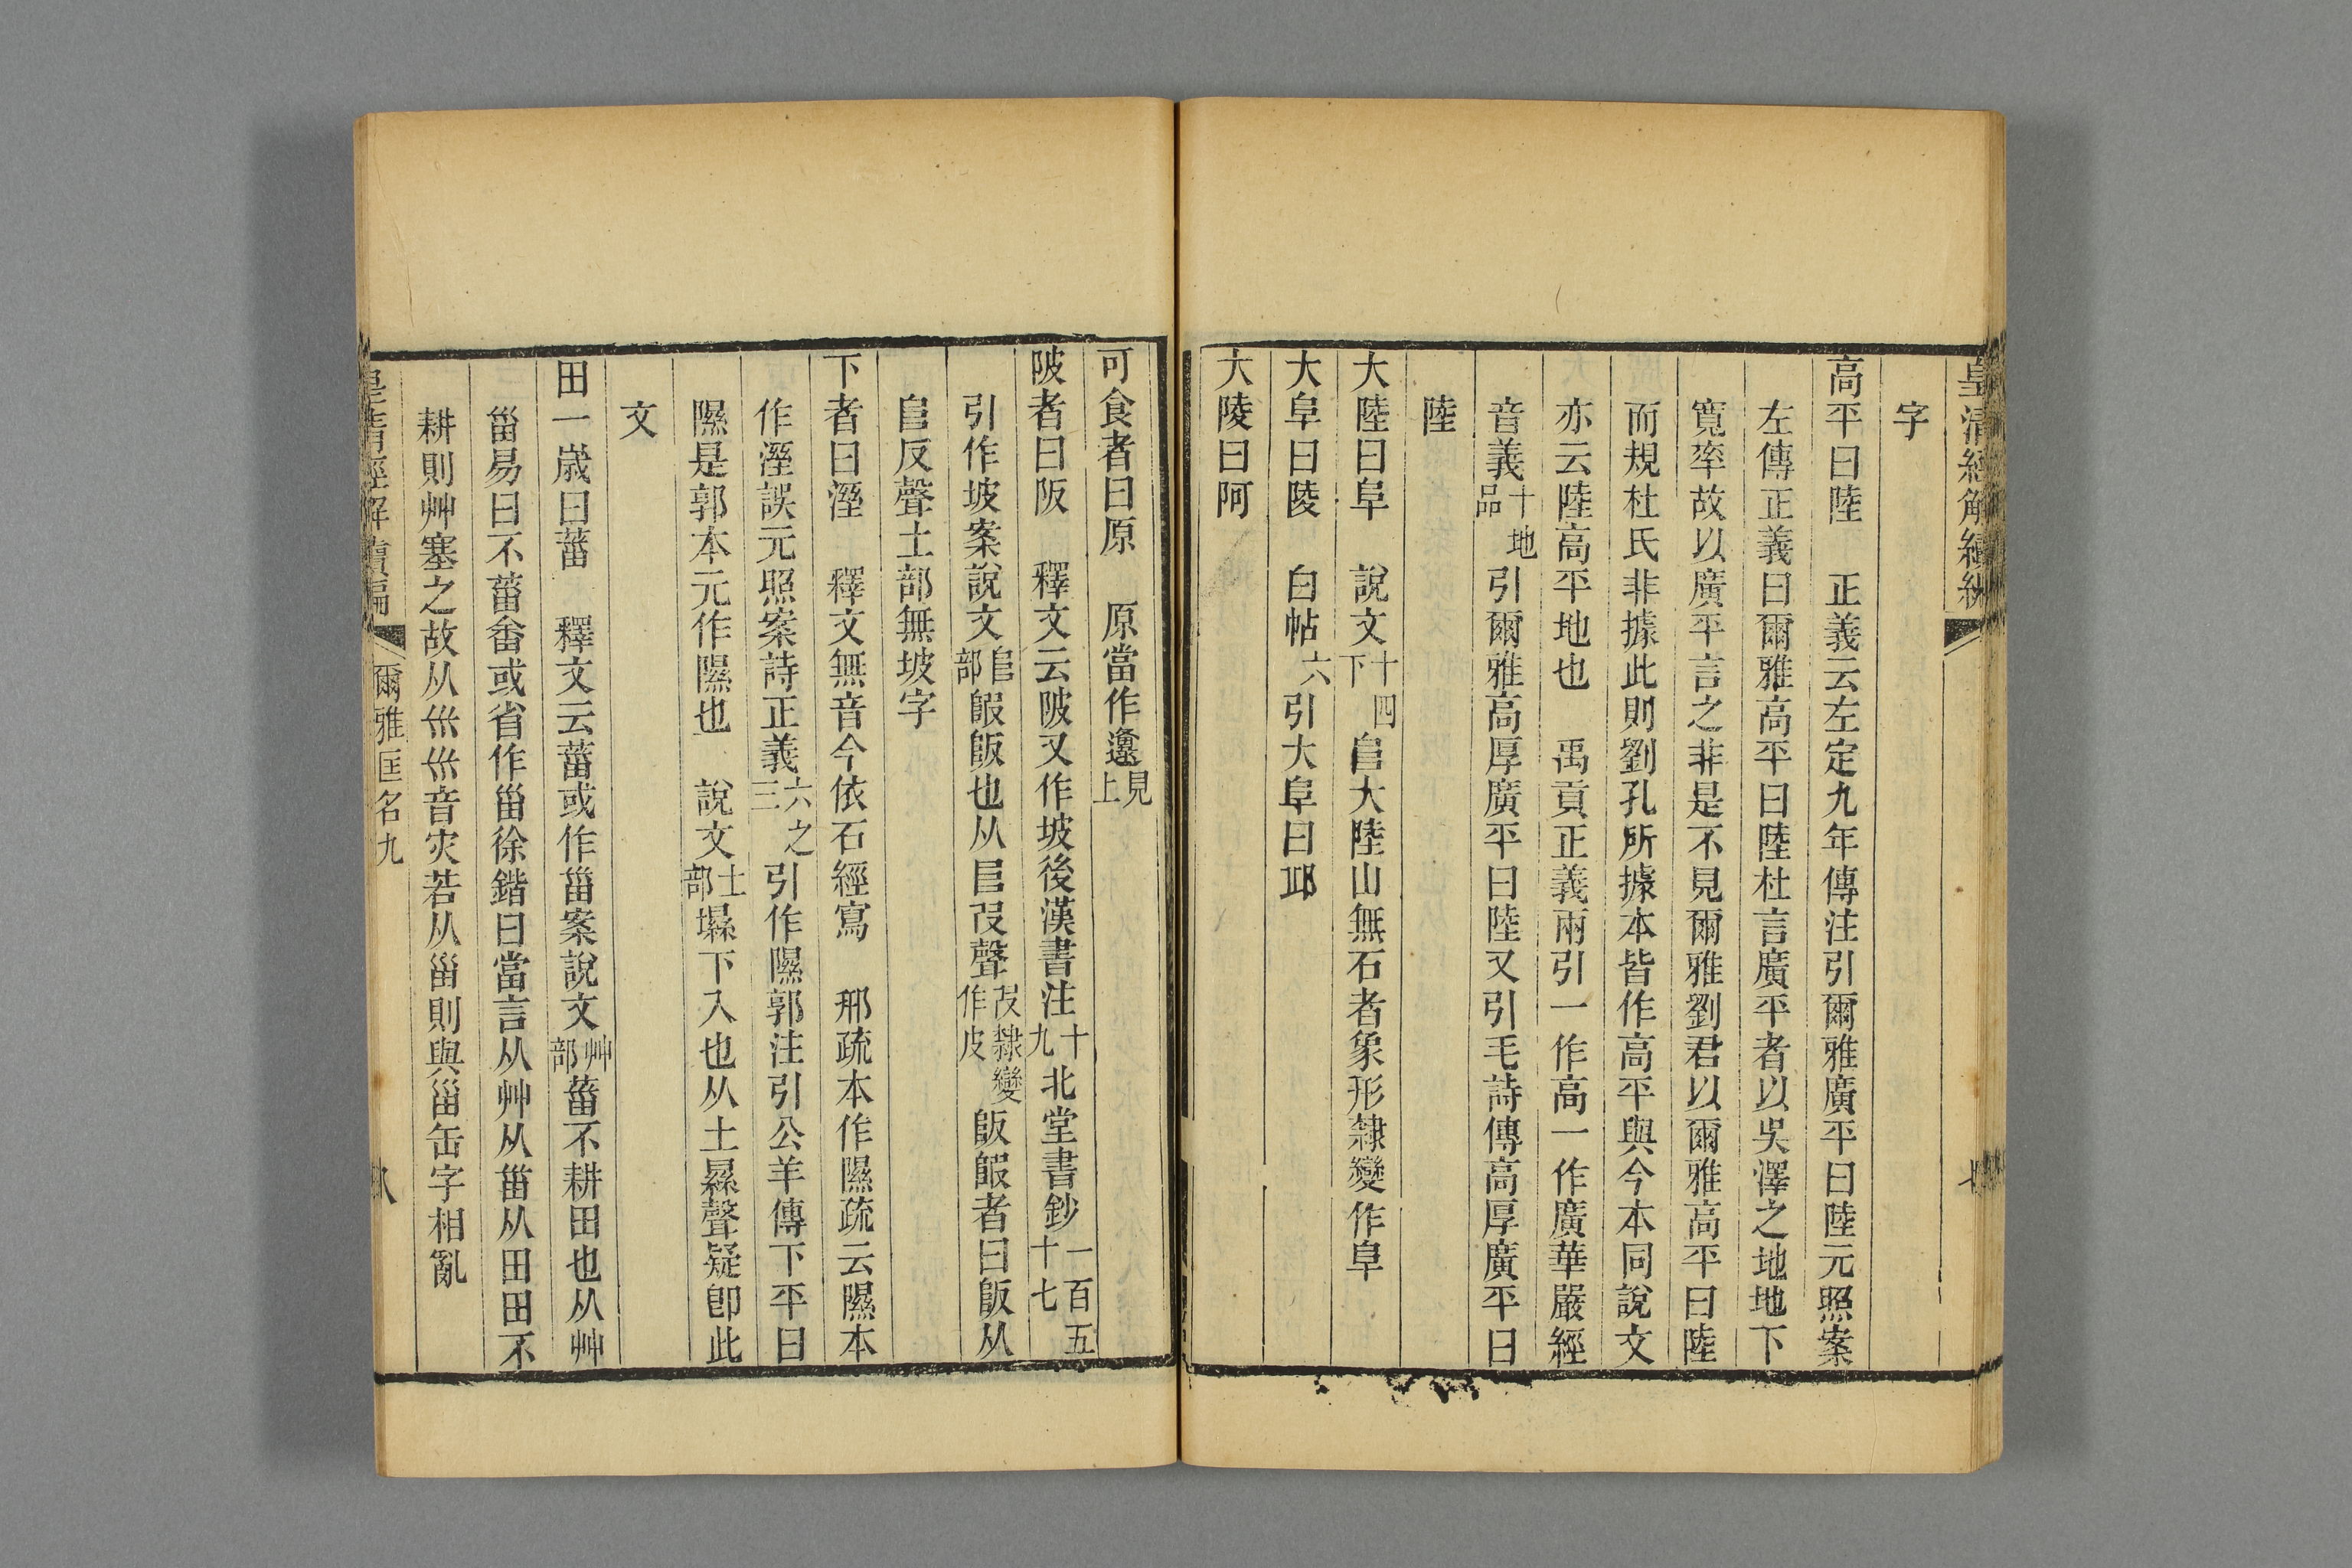 皇清經解續編
字
高平曰陸　正義云左定九年傳注引爾雅廣平曰陸元照案
左傳正義曰爾雅高平曰陸杜言廣平者以吳澤之地地下
寬率故以廣平言之非是不見爾雅劉君以爾雅高平曰陸
而規杜氏非據此則劉孔所據本皆作高平與今本同說文
亦云陸高平地也　禹貢正義兩引一作高一作廣華嚴經
音義十地品引爾雅高厚廣平曰陸又引毛詩傳高厚廣平曰
陸
大陸曰阜　說文十四下𨸏大陸山無石者象形隸變作阜
大阜曰陵　白帖六引大阜曰邱
大陵曰阿
可食者曰原　原當作邍見上
陂者曰阪　釋文云陂又作坡後漢書注十九北堂書鈔一百五十七
引作坡案說文𨸏部䧕𨸝也从𨸏𠬝聲𠬝隸變作皮𨸝䧕者曰𨸝从
𨸏反聲土部無坡字
下者曰溼　釋文無音今依石經寫　邢疏本作隰疏云隰本
作溼誤元照案詩正義六之三引作隰郭注引公羊傳下平曰
隰是郭本元作隰也　說文土部㙷下入也从土㬎聲疑卽此
文
田一歲曰菑　釋文云菑或作甾案說文艸部菑不耕田也从艸
甾易曰不菑畬或省作甾徐鍇曰當言从艸从甾从田田不
耕則艸塞之故从巛巛音灾若从甾則與甾缶字相亂
皇淸經解續編　爾雅匡名九　八